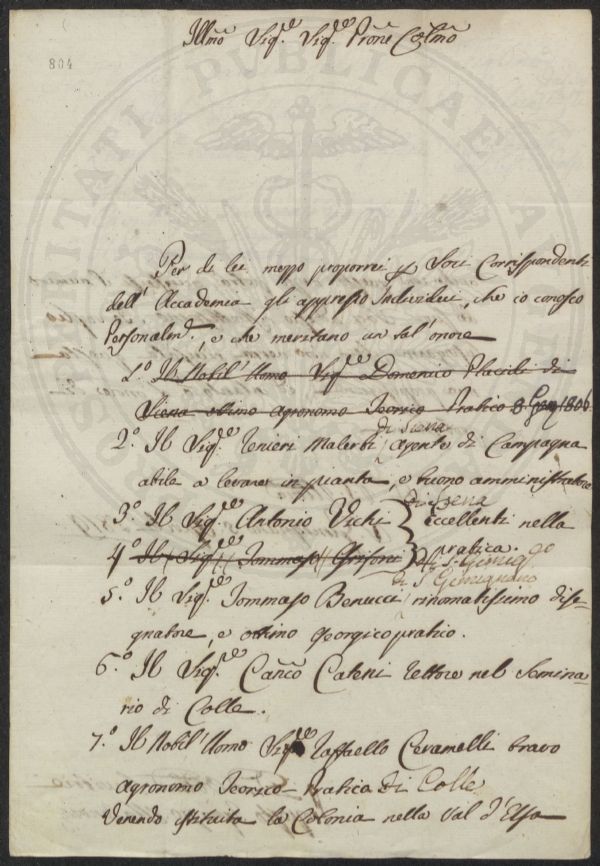 804
Illmo Sigre. Sigre. Prone Colmo
Per di lei mezzo proporrei p Soci Corrispondenti
dell' Accademia gli appresso Individui, che io conosco
Personalme., e che meritano un tal' onore
1.o Il Nobil' Uomo Sigre Domenico Placidi di
Siena ottimo agronomo Teorico Pratico 8 1806
di Siena
2.o Il Sigre. Malerbi agente di Campagna
abile a levare in pianta, e buono amministratore
di Siena
3.o Il Sigre. Antonio Vichi } eccellenti nella
4.o Il Sigre. Tommaso Grifoni } pratica. di S. Gimigno
di S. Gimignano
5.o Il Sigre. Tommaso Benucci rinomatissimo dise-
gnatore, e ottimo Georgico pratico.
6.o Il Sigre. Canco Cateni Rettore nel Semina-
rio di Colle.
7.o Il Nobil' Uomo Sigre Raffaello Ceramelli bravo
agronomo Teorico Pratica di Colle
Venendo istituita la Colonia nella Val d'Elsa
PROSPERITATI PUBLICAE AUGENDAE